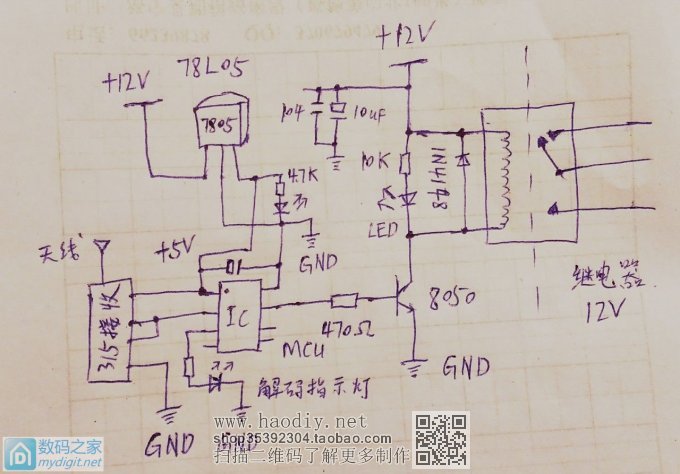 +12V
78L05
+12V
7805
104
10uF
4.7K
10K
1N4148
LED
天线
+5V
GND
继电器
12V
315接收
IC
MCU
470Ω
8050
GND
解码指示灯
GND
GND
www.haodiy.net
shop35392304.taobao.com
扫描二维码了解更多制作
数码之家
mydigit.net